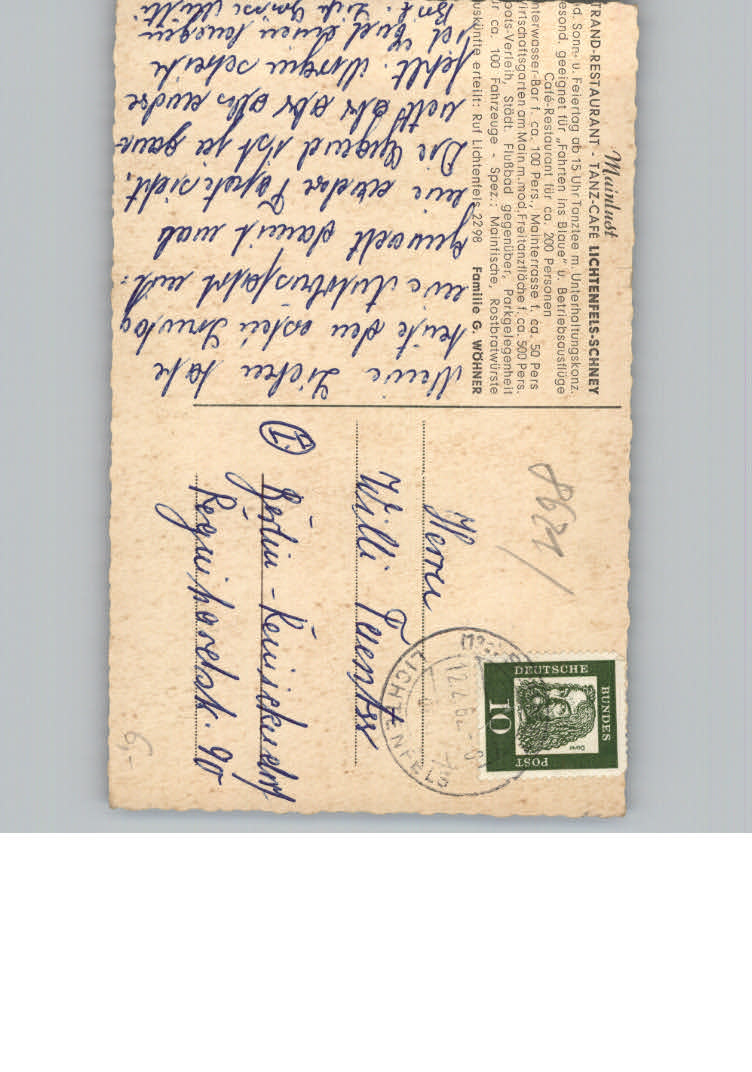 Mainlust
TRAND-RESTAURANT - TANZ-CAFÉ LICHTENFELS-SCHNEY
d. Sonn- u. Feiertag ab 15 Uhr Tanztee m. Unterhaltungskonz.
esond. geeignet für „Fahrten ins Blaue" u. Betriebsausflüge
Café-Restaurant für ca. 200 Personen
nterwasser-Bar f. ca. 100 Pers., Mainterrasse f. ca. 50 Pers
Wirtschaftsgarten am Main m. mod. Freitanzfläche f. ca. 500 Pers.
oots-Verleih, Städt. Flußbad gegenüber, Parkgelegenheit
ür ca. 100 Fahrzeuge - Spez.: Mainfische, Rostbratwürste
uskünfte erteilt: Ruf Lichtenfels 2298 Familie G. WÖHNER
Meine Lieben habe
heute den ersten
eine Autobusfahrt mit
gemacht damit mal
eine andre
Die Gegend ist ja ganz
nett aber alles andre
fehlt. Morgen schreibe
ich Euch einen langen
Brief.
Herrn
Willi
Berlin - Reinickendorf
90
I
8621
6,-
LICHTENFELS
DEUTSCHE
BUNDES
POST
10
Dürer